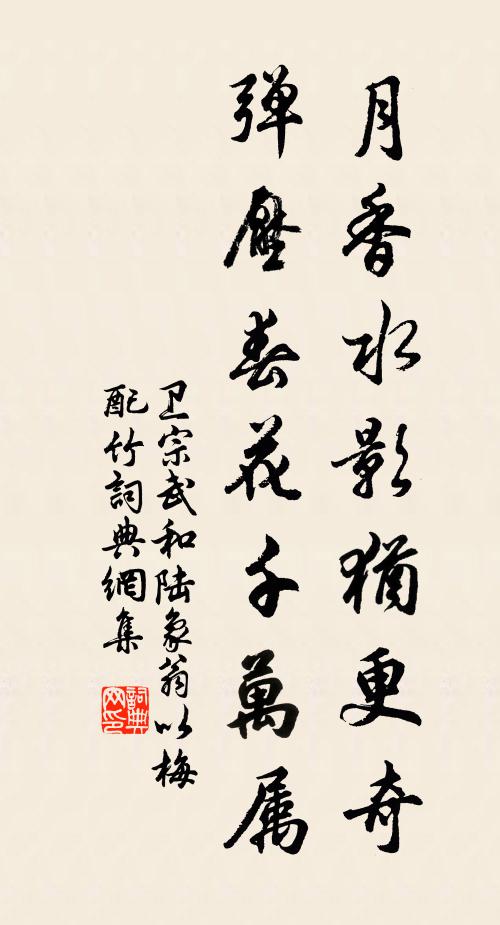 月香水影猶更奇
弹壓春花千萬属
卫宗武和陆象翁以梅
配竹詞典網集
詞典網印